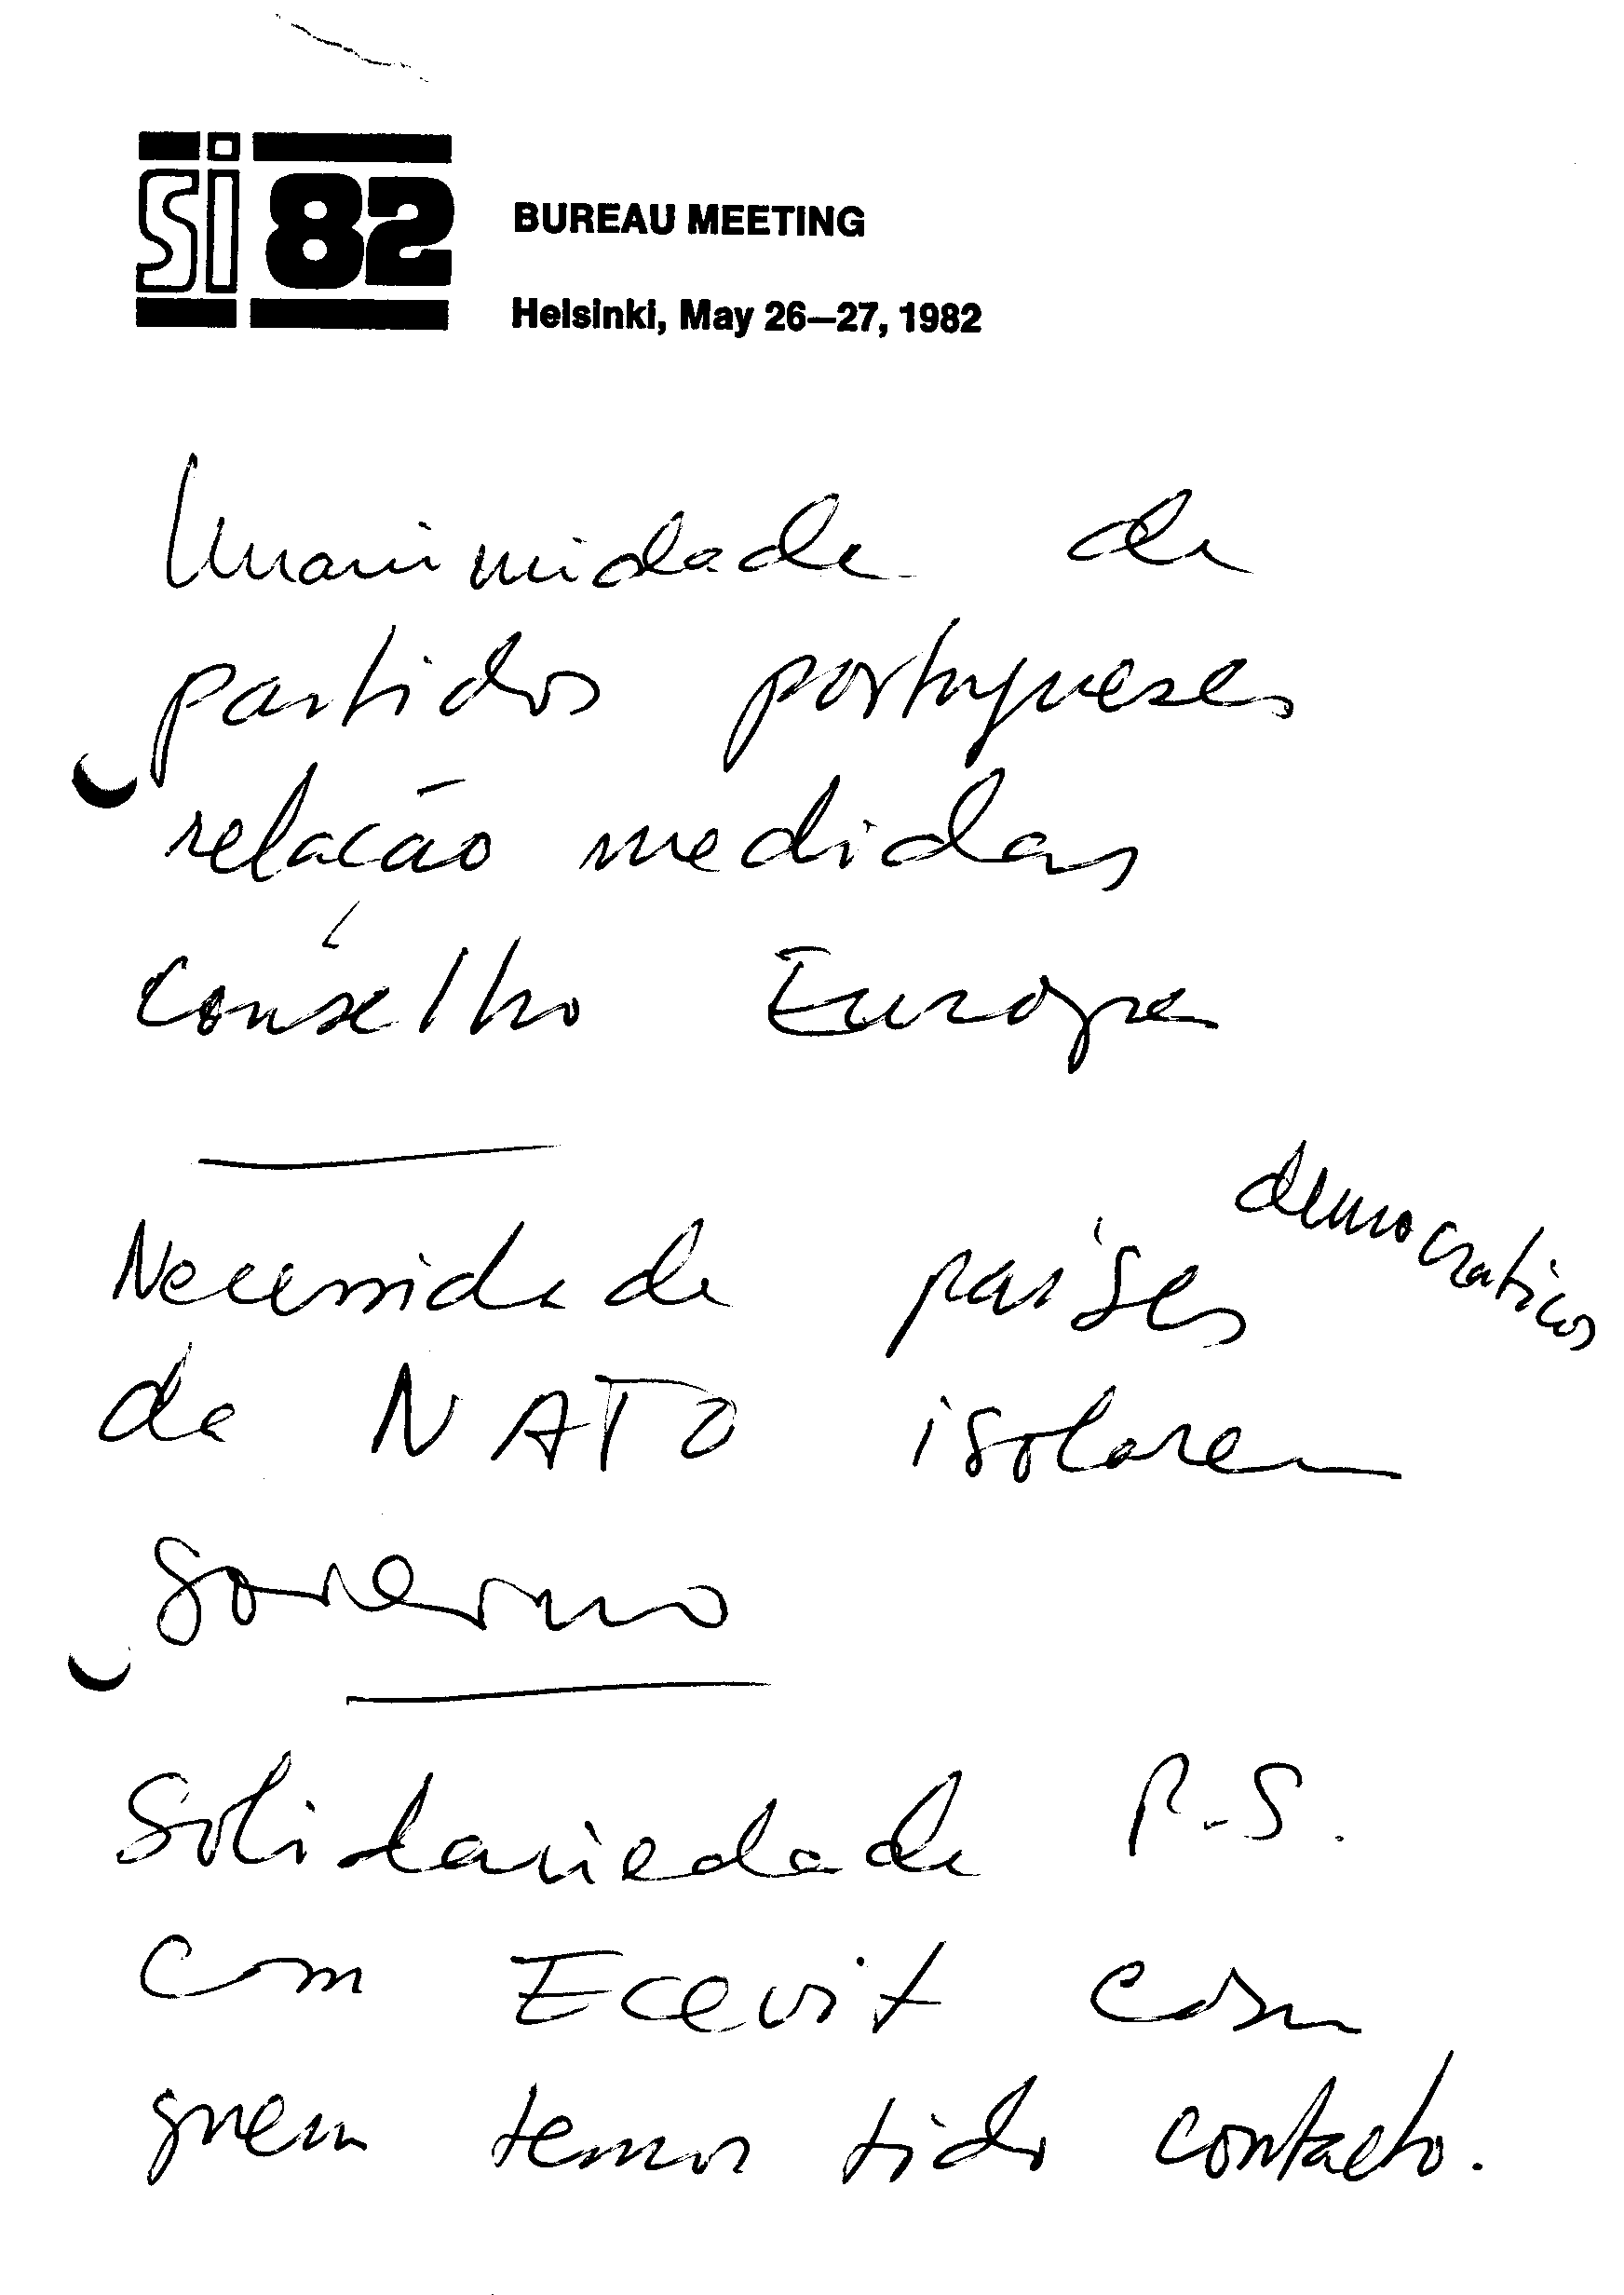 SI 82
BUREAU MEETING
Helsinki, May 26–27, 1982
Unanimidade de
partidos portugueses
relação medidas
Conselho Europa
democraticos
Necessidade países
da NATO isolarem
Governo
Solidariedade P.S.
com Ecevit com
quem temos tido contacto.